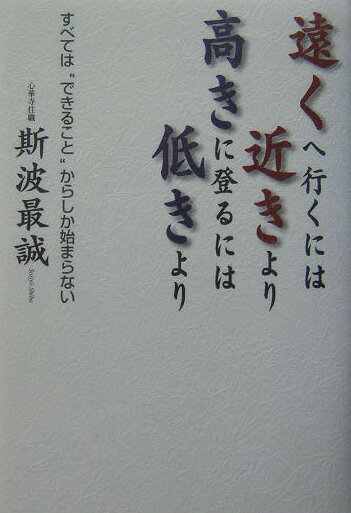 遠くへ行くには
近きより
高きに登るには
低きより
すべては"できること"からしか始まらない
心華寺住職
斯波最誠
Saijyo Shiba